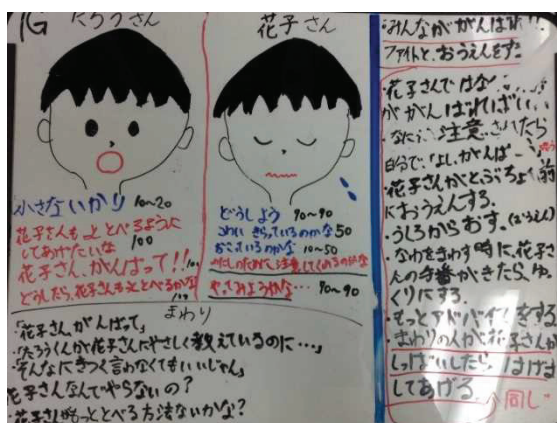 たろうさん
花子さん
小さないかり 10~20
花子さんも
とべるように
してあげたいな 100
花子さん、がんばって!!
どうしたら、花子さんも
とべるかな
どうしよう 90~90
きらっているのかな 50
おこっているのかな 10~50
やってみようかな… 90~90
まわり
「花子さんがんばって」
「たろうくんが花子さんにやさしく教えているのに…」
そんなにきつく言わなくてもいいじゃん」
花子さんなんでやらないの?
・花子さんがもっととべる方法ないかな?
・みんなががんばれ!!
ファイトと、おうえんを
・花子さんでは
ががんばればいい
注意されたら
自分で「よし、がんば
・花子さんがとぶちょく前
におうえんする。
・うしろからおす。(おうえん)
・なわをまわす時に、花子さ
んの番がきたら、ゆ
くりにする。
・もっとアドバイスをする
・まわりの人が花子さんが
しっぱいしたら、はげま
してあげる。
同じ